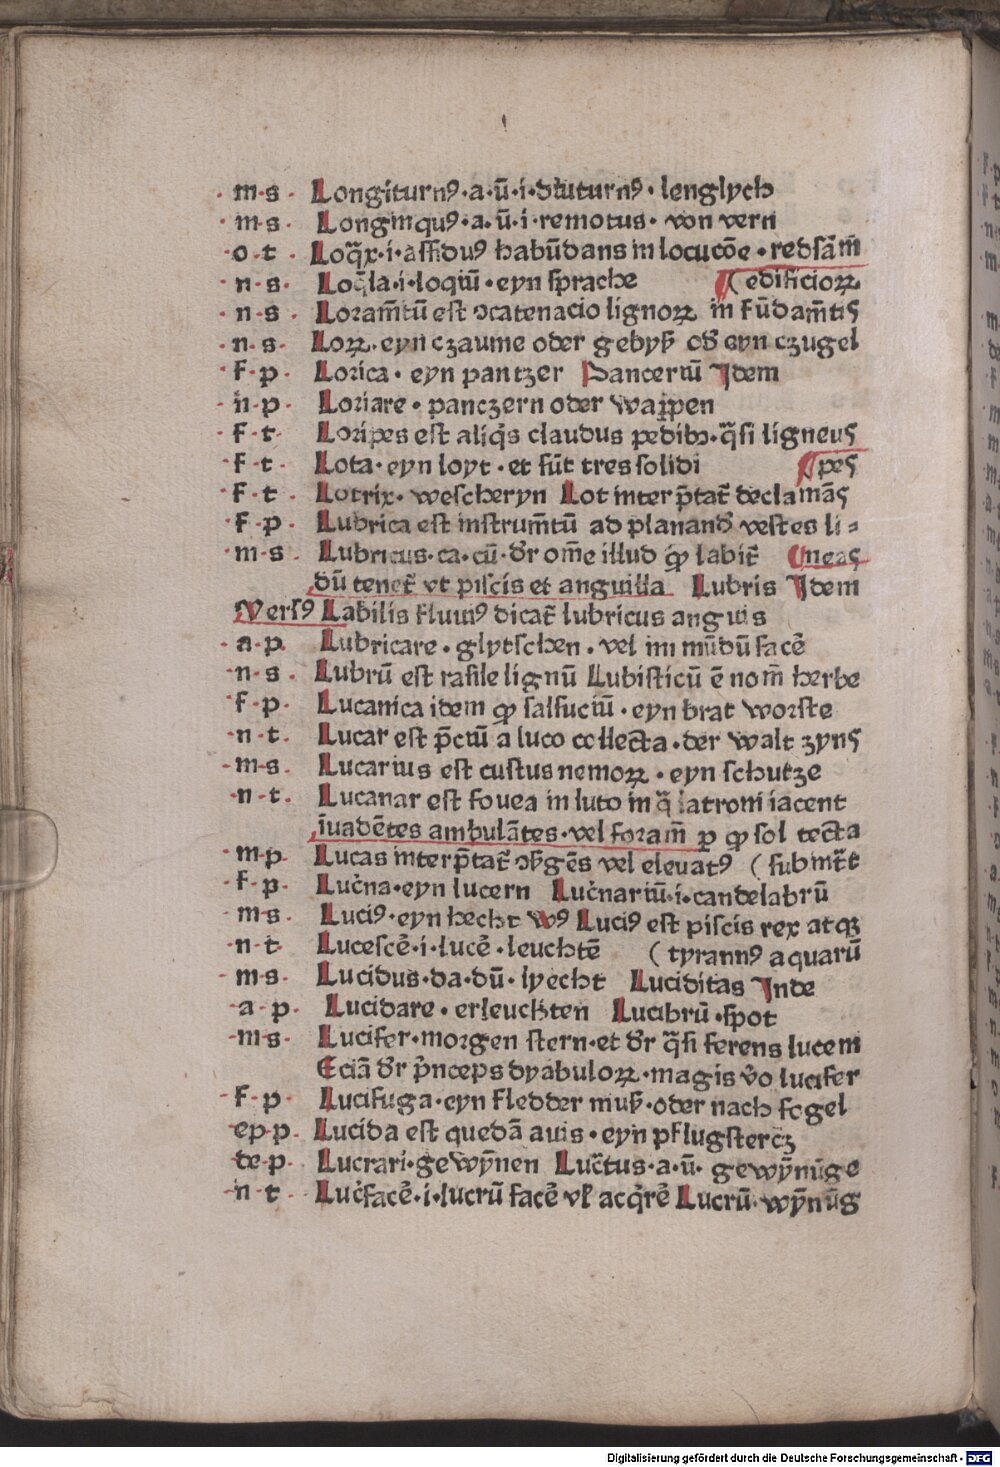 m·s· Longiturnꝰ·a·ū·i·diuturnꝰ·lenglych
m·s· Longinquꝰ·a·ū·i·remotus·von vern
o·t· Loq̄x·i·assiduꝰ habūdans in locucōe·redsam̄
n·s· Loq̄la·i·loqiū·eyn sprache (edificioꝝ
n·s· Loram̄tū est ↄcatenacio lignoꝝ in fūdam̄tis
n·s· Loꝝ·eyn czaume oder gebyß od̛ eyn czugel
f·p· Lorica·eyn pantzer Panceriū Idem
n·p· Loriare·panczern oder wappen
f·t· Loripes est aliq̇s claudus pedibꝫ·q̄si ligneus
f·t· Lota·eyn loyt·et sūt tres solidi (pes
f·t· Lotrix·wescheryn Lot inter p̄tat᷑ declamās
f·p· Lubrica est instrum̄tū ad planand̛ vestes li⸗
m·s· Lubricus·ca·cū·dr̛ om̄e illud ꝙ labit᷑ (neas
dū tenet᷑ vt piscis et anguilla Lubris Idem
Versꝰ Labilis fluuiꝰ dicat᷑ lubricus anguis
a·p· Lubricare·glytschen·vel in mūdū facē
n·s· Lubrū est rasile lignū Lubisticū ē nom̄ herbe
f·p· Lucanica idem ꝙ salsuciū·eyn brat worste
n·t· Lucar est p̄ciū a luco collecta·der walt zyns
m·s· Lucarius est custus nemoꝝ·eyn schutze
n·t· Lucanar est fouea in luto in q̄ latroni iacent
īuadētes ambulātes·vel foram̄ ꝑ ꝙ sol tecta
m·p· Lucas inter p̄tat᷑ ↄsurgēs vel eleuatꝰ (subintrat
f·p· Luc̛na·eyn lucern Luc̛nariū·i·candelabrū
m·s· Luciꝰ·eyn hecht Vꝰ Luciꝰ est piscis rex atqꝫ
n·t· Lucescē·i·lucē·leuchtē (tyrannꝰ aquarū
m·s· Lucidus·da·dū·lyecht Luciditas Inde
a·p· Lucidare·erleuchten Lucibrū·spot
m·s· Lucifer·morgen stern·et dr̛ q̄si ferens lucem
Eciā dr̛ p̄nceps dyaboloꝝ·magis v̊o lucifer
f·p· Lucifuga·eyn fledder muß·oder nach fogel
ep·p· Lucida est quedā auis·eyn pflugstercz
de·p· Lucrari·gewȳnen Luc̛tus·a·ū·gewȳnūge
n·t· Luc̛facē·i·lucrū facē vl̛ acq̇rē Lucrū·wȳnūg
Digitalisierung gefördert durch die Deutsche Forschungsgemeinschaft - DFG